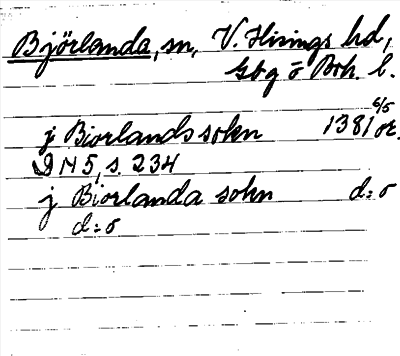 Björlanda, sn, V. Hisings hd,
Gbg o Boh. l.
j Biorlandssokn 1381 6/5 or.
DN 5, s. 234
j Biorlanda sokn d:o
d:o